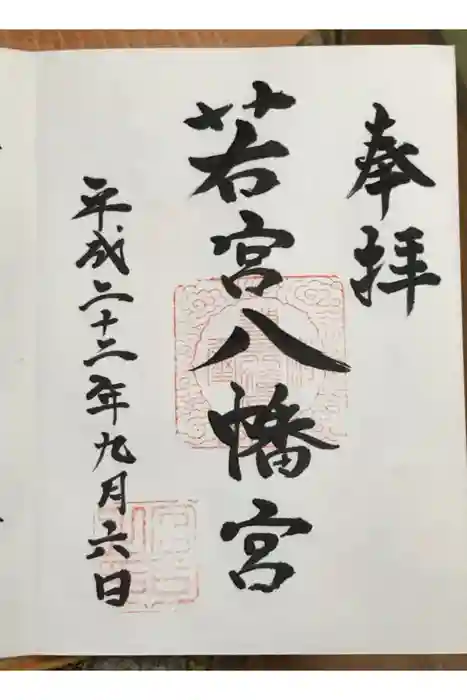 奉拝
若宮八幡宮
平成二十二年九月六日